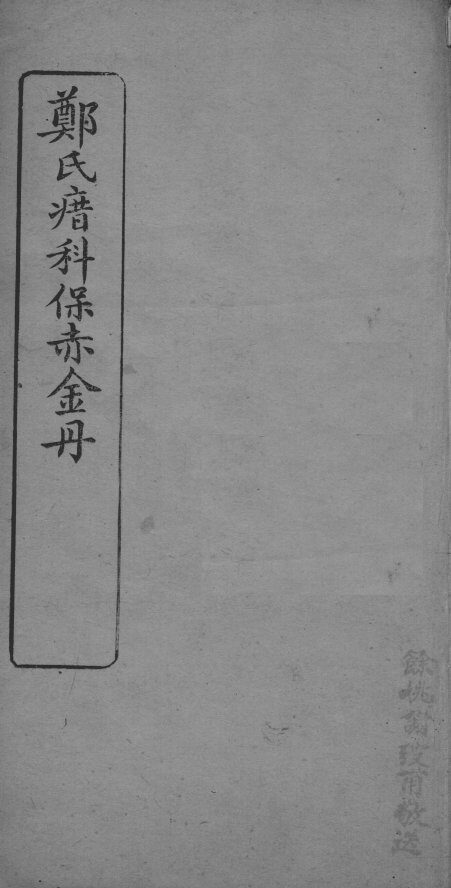 鄭氏㾮科保赤金丹
餘姚謝玫甫敬送